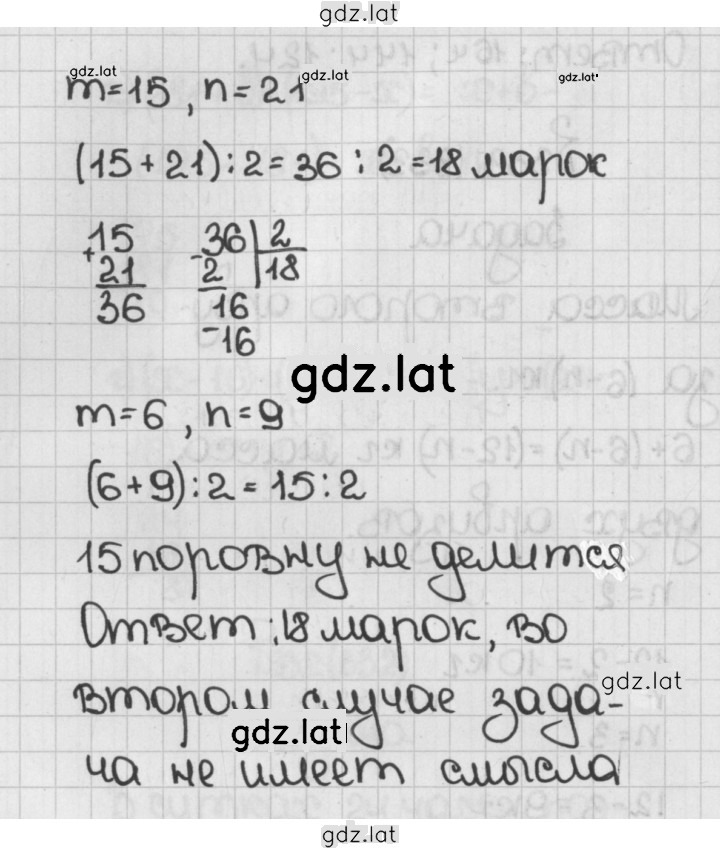 gdz.lat
gdz.lat gdz.lat gdz.lat
m=15, n=21
(15+21):2=36:2=18 марок
15 36 2
+ 21 - 2 18
36 16
-16
gdz.lat
m=6, n=9
(6+9):2=15:2
15 поровну не делится
Ответ: 18 марок, во
втором случае зада-
gdz.lat
gdz.lat
ча не имеет смысла
gdz.lat